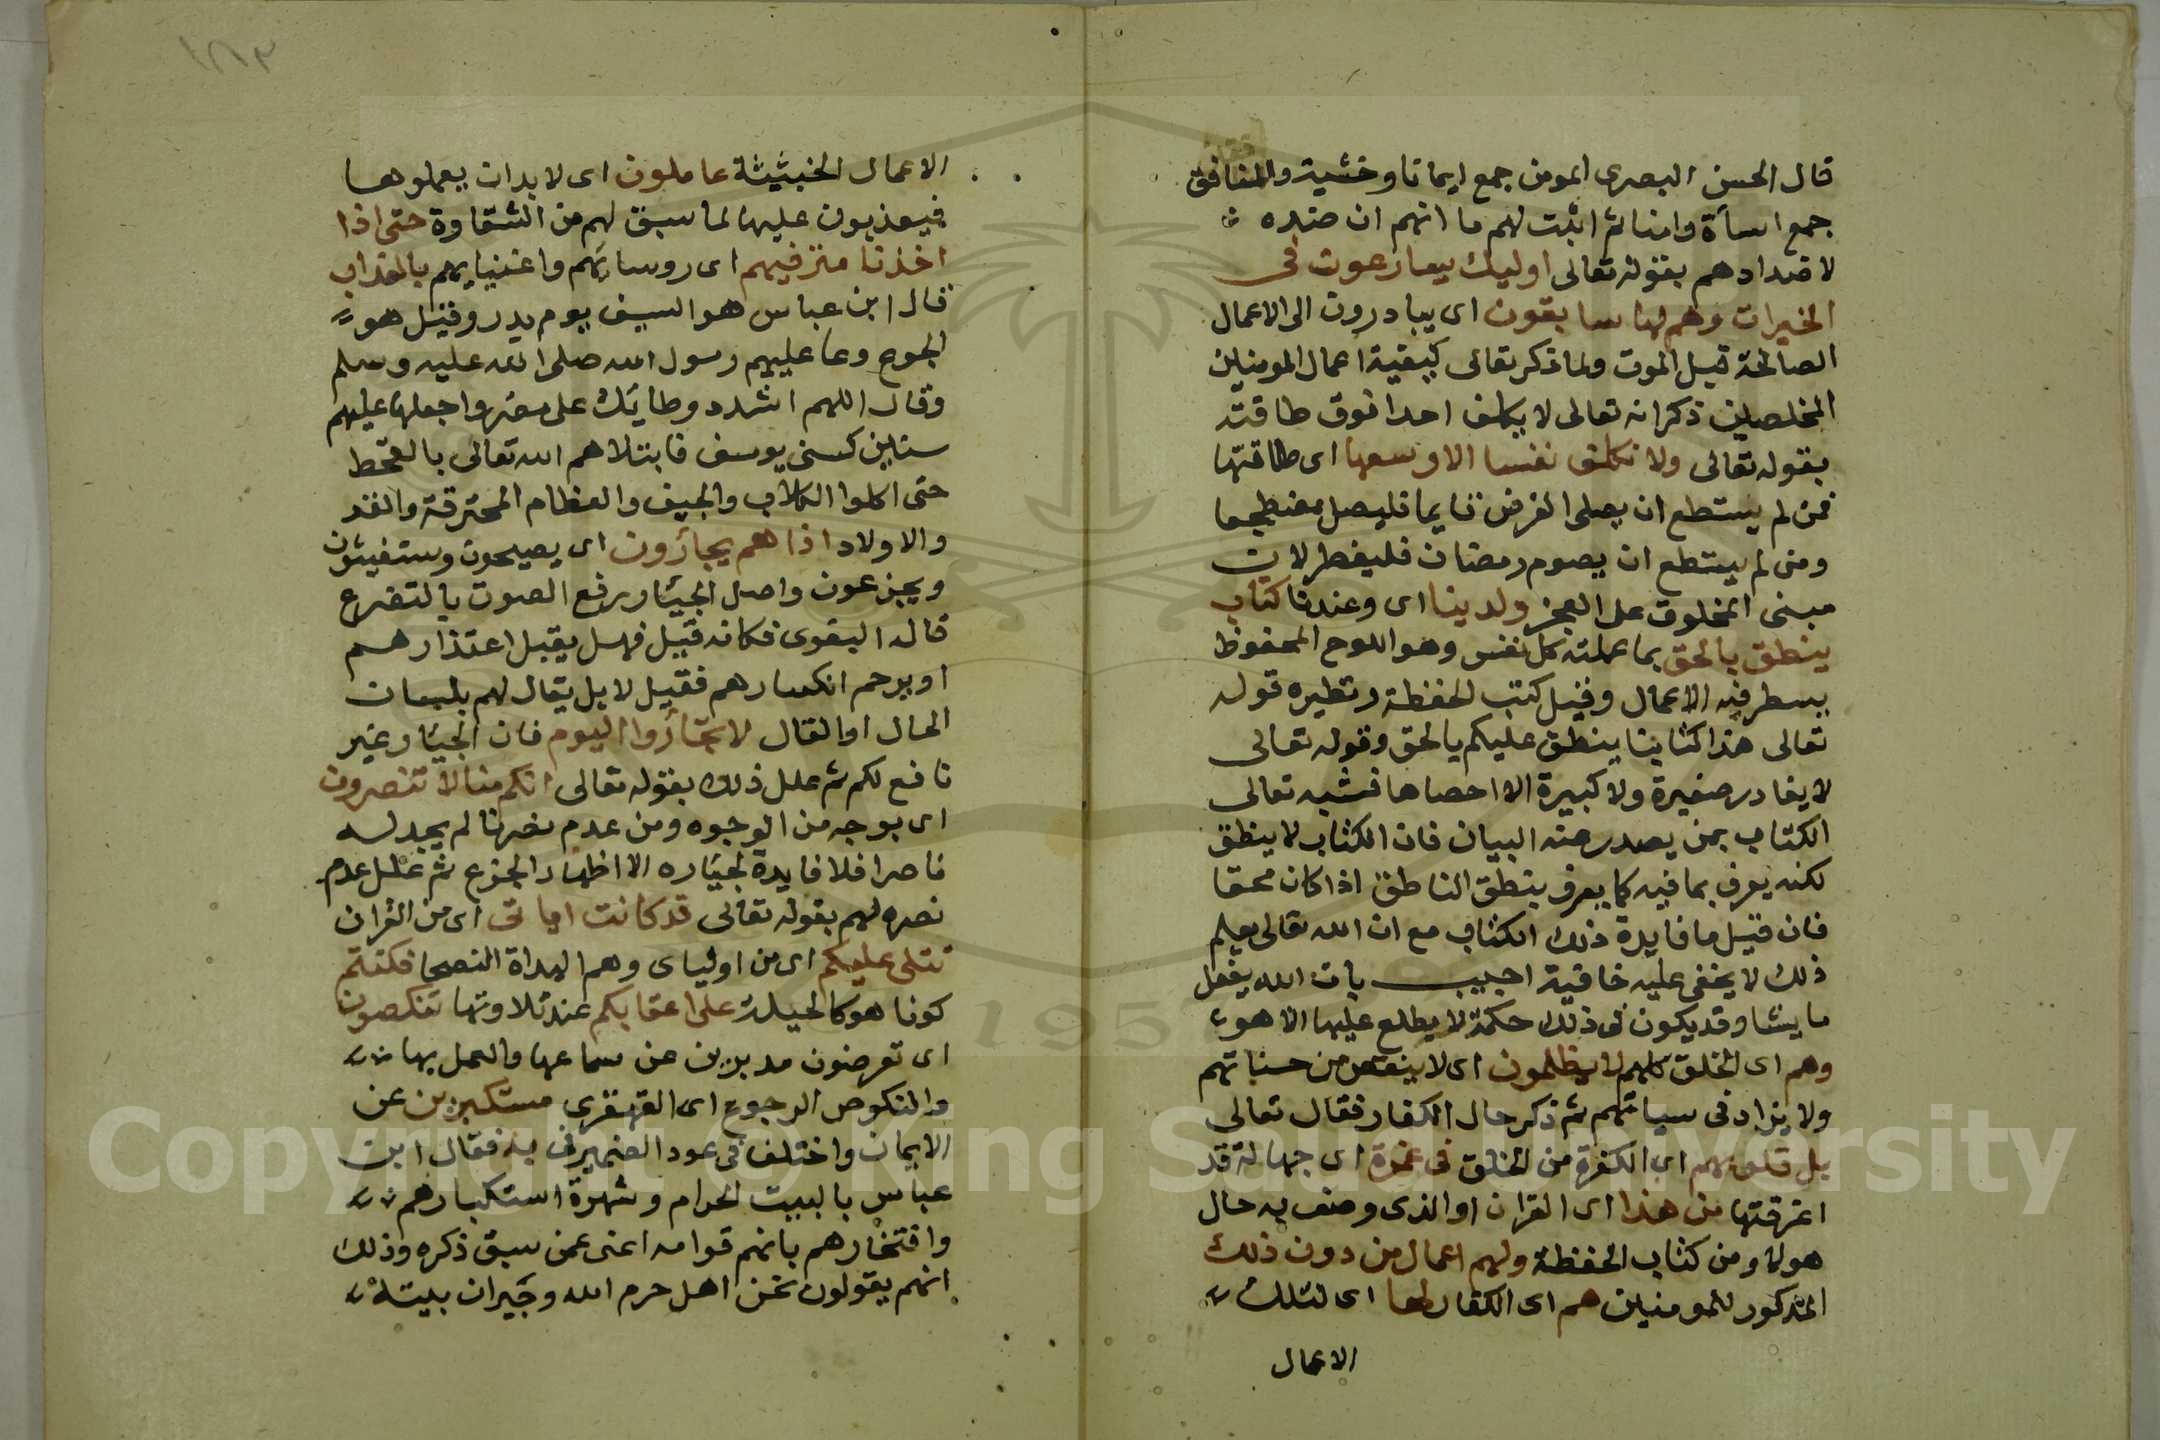 قال الحسن البصرى المومن جمع ايمانا وخشية والمنافق
جمع اساة وامنا ثم اثبت لهم ما انهم ان ضده
لاضدادهم بقوله تعالى اوليك يسارعون فى
الخيرات وهم لها سابقون اى يبادرون الى الاعمال
الصالحة قبل الموت ولما ذكر تعالى كيفية اعمال المومنين
المخلصين ذكر انه تعالى لا يكلف احدا فوق طاقته
بقوله تعالى ولا نكلف نفسا الا وسعها اى طاقتها
فمن لم يستطع ان يصلى الفرض قايما فليصل مضطجعا
ومن لم يستطع ان يصوم رمضان فليفطر لان
مبنى المخلوق على العجز ولدينا اى وعندنا كتاب
ينطق بالحق بما عملته كل نفس وهو اللوح المحفوظ
يسطر فيه الاعمال وقيل كتب الحفظة ونظيره قوله
تعالى هذا كتابنا ينطق عليكم بالحق وقوله تعالى
لا يغادر صغيرة ولا كبيرة الا احصاها فشبه تعالى
الكتاب بمن يصدر عنه البيان فان الكتاب لا ينطق
لكنه يعرف بما فيه كما يعرف بنطق الناطق اذا كان محقا
فان قيل ما فايدة ذلك الكتاب مع ان الله تعالى يعلم
ذلك لا يخفى عليه خافية اجيب بان الله يفعل
ما يشا وقد يكون فى ذلك حكمة لا يطلع عليها الا هو
وهم اى الخلق كلهم لا يظلمون اى لا ينقص من حسناتهم
ولا يزاد فى سياتهم ثم ذكر حال الكفار فقال تعالى
بل قلوبهم اى الكفرة من الخلق فى غمرة اى جهالة قد
اغرقتها من هذا اى القران او الذى وصف به حال
هولا ومن كتاب الحفظة ولهم اعمال من دون ذلك
المذكور للمومنين هم اى الكفار لها اى لتلك
الاعمال
١٨٣
الاعمال الخبيثة عاملون اى لا بد ان يعملوها
فيعذبون عليها لما سبق لهم من الشقاوة حتى اذا
اخذنا مترفيهم اى روسائهم واغنيايهم بالعذاب
قال ابن عباس هو السيف يوم بدر وقيل هو
الجوع دعا عليهم رسول الله صلى الله عليه وسلم
وقال اللهم اشدد وطاتك على مضر واجعلها عليهم
سنين كسنى يوسف فابتلاهم الله تعالى بالقحط
حتى اكلوا الكلاب والجيف والعظام المحترقة والقد
والاولاد اذا هم يجأرون اى يصيحون ويستغيثون
ويجزعون واصل الجيار رفع الصوت بالتضرع
قاله البغوى فكانه قيل فهل يقبل اعتذارهم
او يرحم انكسارهم فقيل لا بل يقال لهم بلسان
الحال او القال لا تجأروا اليوم فان الجيار غير
نافع لكم ثم علل ذلك بقوله تعالى انكم منا لا تنصرون
اى بوجه من الوجوه ومن عدم نصرنا لم يجد له
ناصرا فلا فايدة لجياره الا اظهار الجزع ثم علل عدم
نصره لهم بقوله تعالى قد كانت اياتى اى من القران
تتلى عليكم اى من اولياى وهم الهداة النصحا فكنتم
كونا هو كالجبلة على اعقابكم عند تلاوتها تنكصون
اى تعرضون مدبرين عن سماعها والعمل بها
والنكوص الرجوع اى القهقرى مستكبرين عن
الايمان واختلف فى عود الضمير فى به فقال ابن
عباس بالبيت الحرام وشهرة استكبارهم
وافتخارهم بانهم قوامه اغنى عن سبق ذكره وذلك
انهم يقولون نحن اهل حرم الله وجيران بيته
Copyright © King Saud University
195